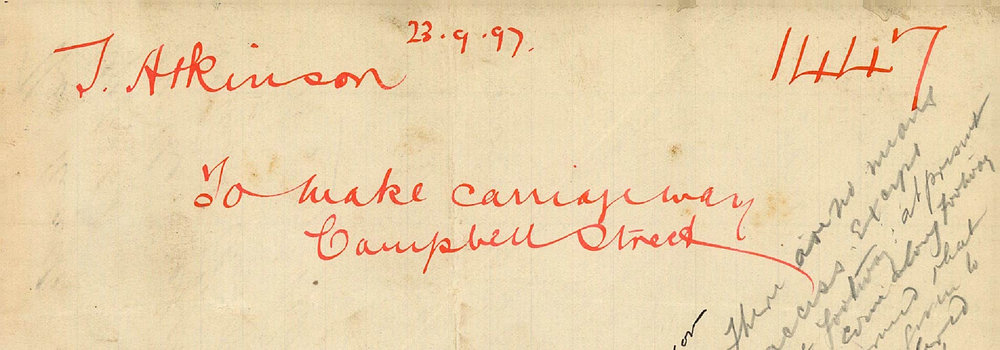 23.9.97.
T. Atkinson
1447
To make carriageway
Campbell Street
There are no means
access except
footway, at present
come along footway
that